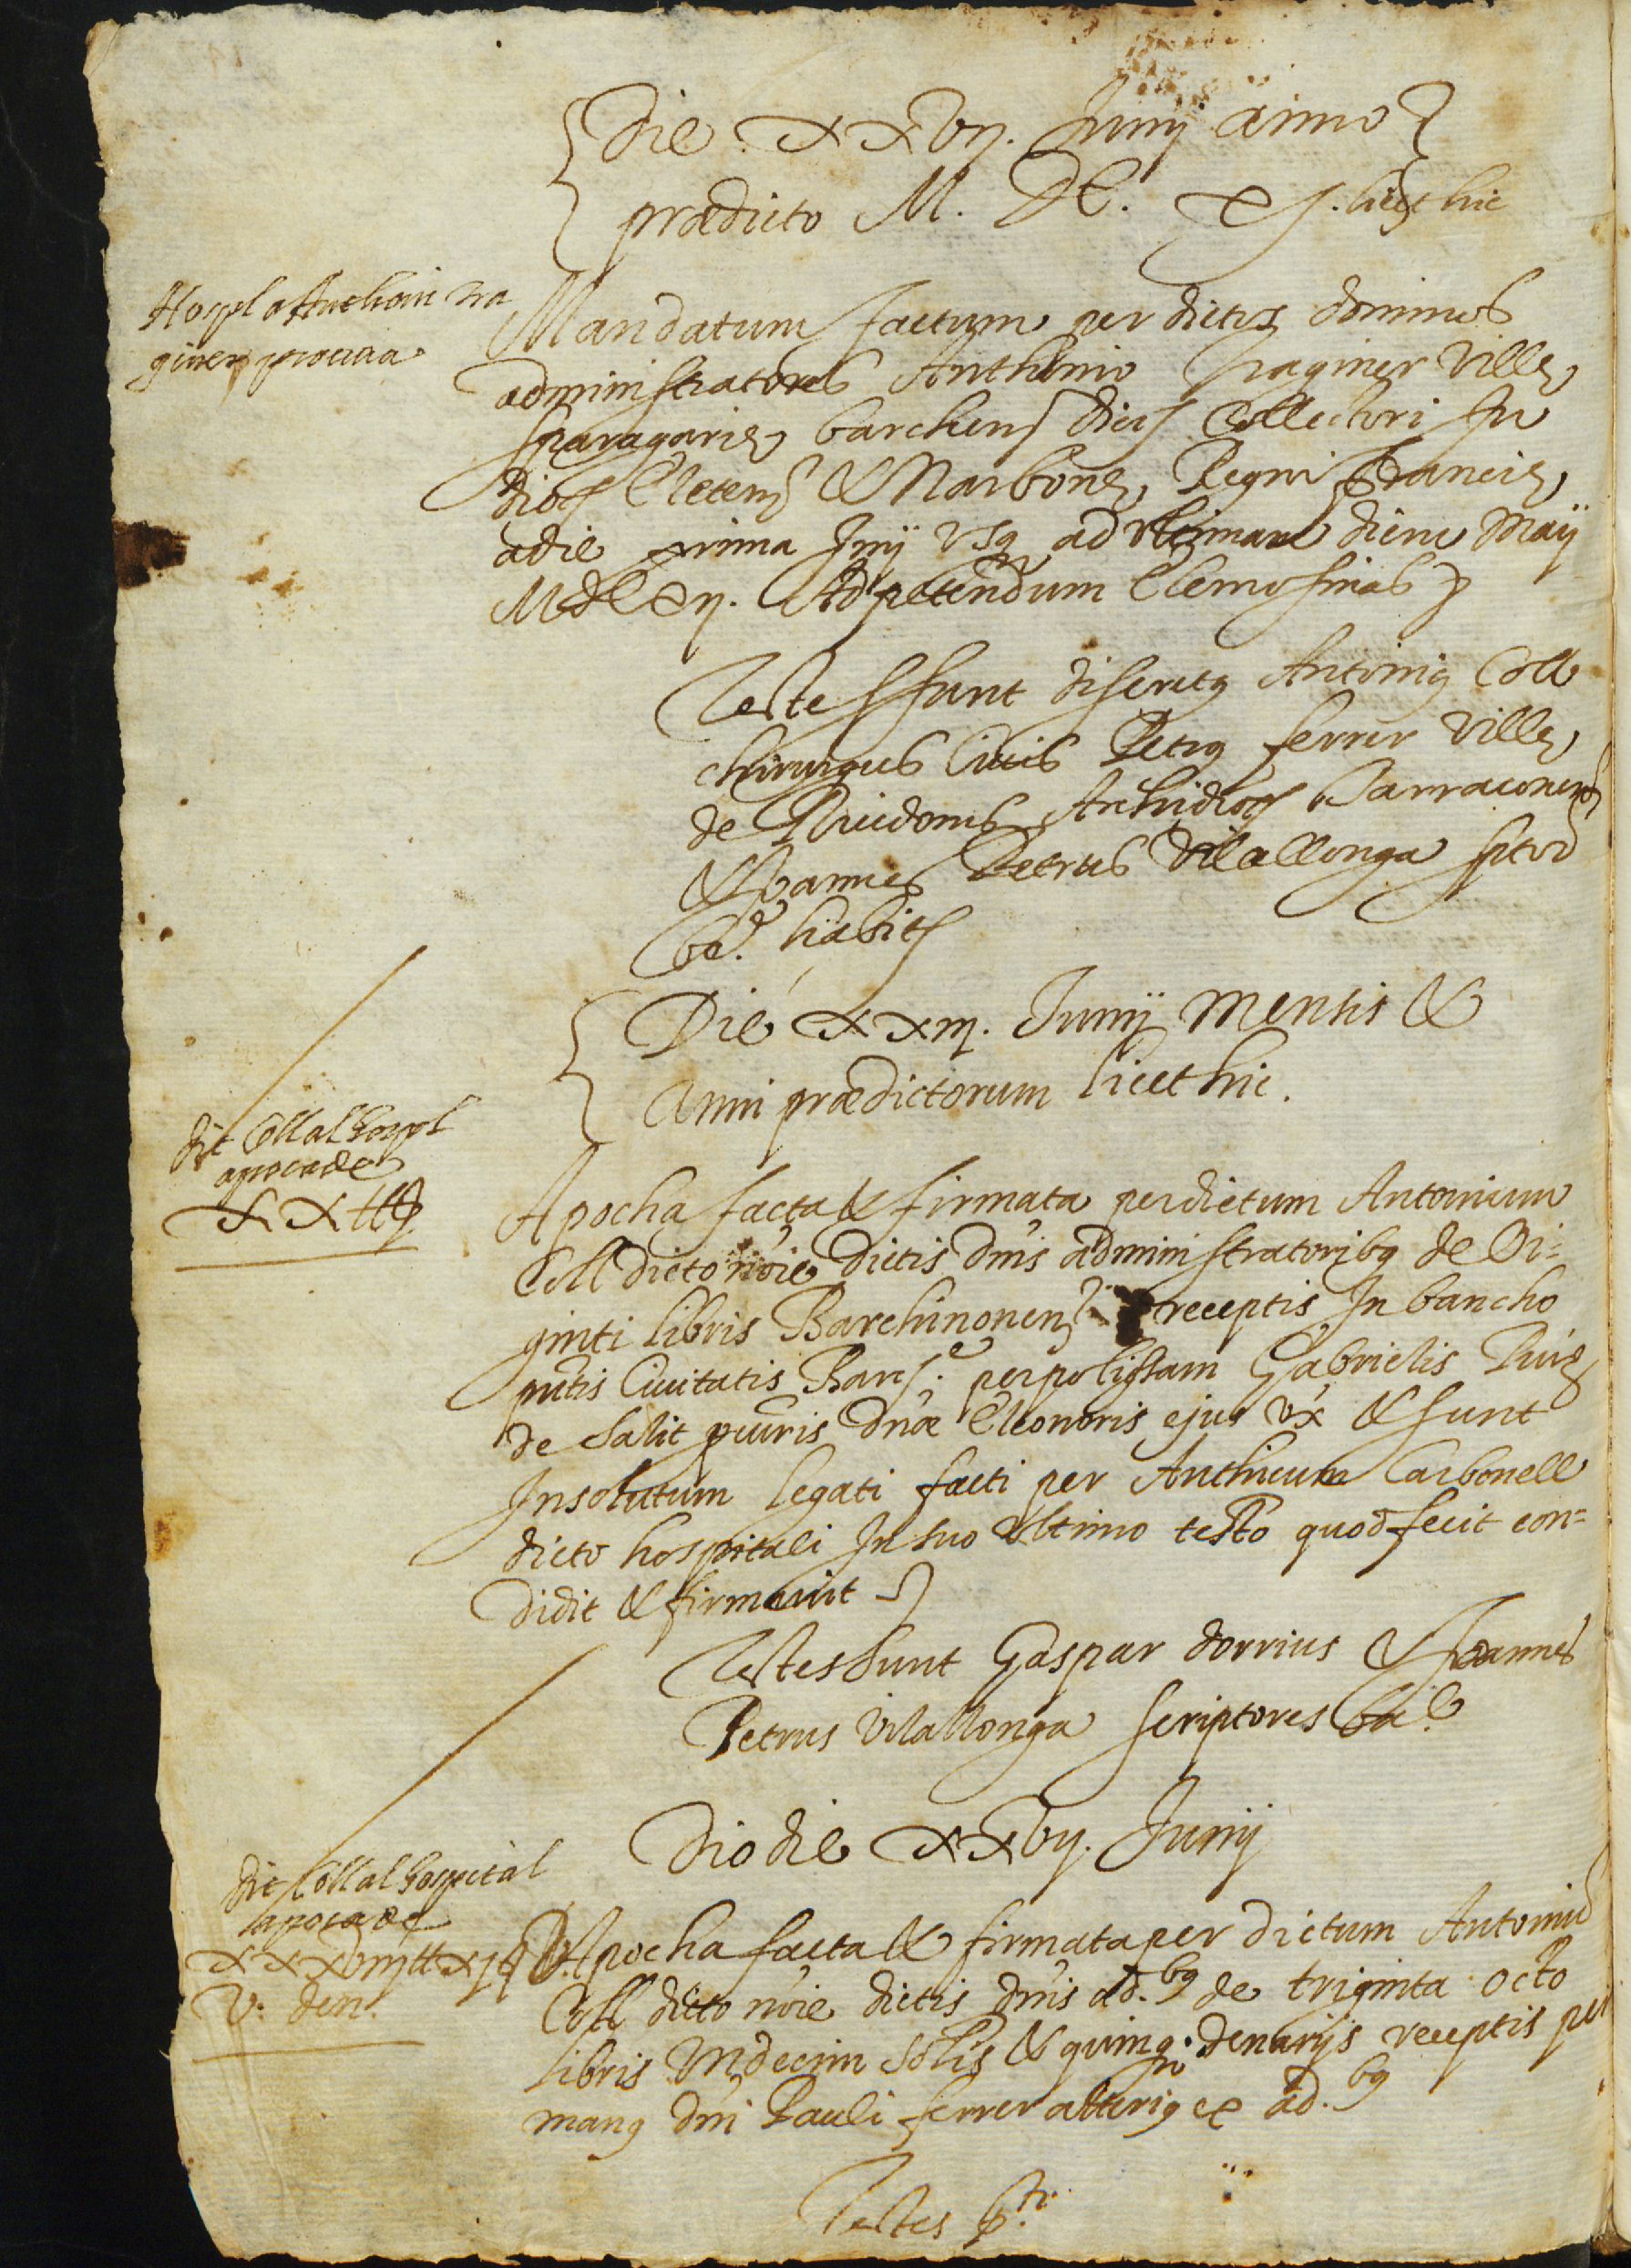 Die xxvij. Junij anno
prædicto M. DC. xj. licet hic
Hospl a Anthoni tra
giner procura
Mandatum factum per dictos dominos
administratores Anthonio traginer ville
barchens dioc Collectori In
dioc Eleten & Narbone, Regni Francie,
a die prima Junij usq ad ultimam diem Maij
MdCxij. Ad petendum Elemosinas
Testes sunt discretq Antoniq Coll
chirurgus Civis Petrq ferrer ville
de Archidioc Tarraconen
& Joannes Petrus Vilallonga sptor
Ba.e habits
Die xxiij. Junij Mensis &
Anni prædictorum licet hic.
dit Coll al hospl
apoca de
xx ll
Apocha facta & firmata per dictum Antonium
Coll dicto noie dictis dnis administratoribq de Vi-
ginti libris Barchinonen receptis In bancho
pntis Civitatis Bar.e per polissam Gabrielis Puig
de Salit dnæ Eleonoris ejus ux & sunt
In solutum legati facti per Anthicum Carbonell
dicto hospitali In suo ultimo testo quod fecit con=
didit & firmavit
Testes sunt Gaspar dorrius & Joannes
Petrus Vilallonga scriptores Ba.e
Dio die xxvij. Junij
dit Coll al hospital
apoca de
xxxviij ll xj s
V. den.
Apocha facta & firmata per dictum Antoniu
Coll dicto noie dictis dnis ad.bq de triginta octo
libris Undecim solis & quinq. denarijs receptis per
manq dni Pauli ferrer alteriq ex ad.bq
Testes p.ti